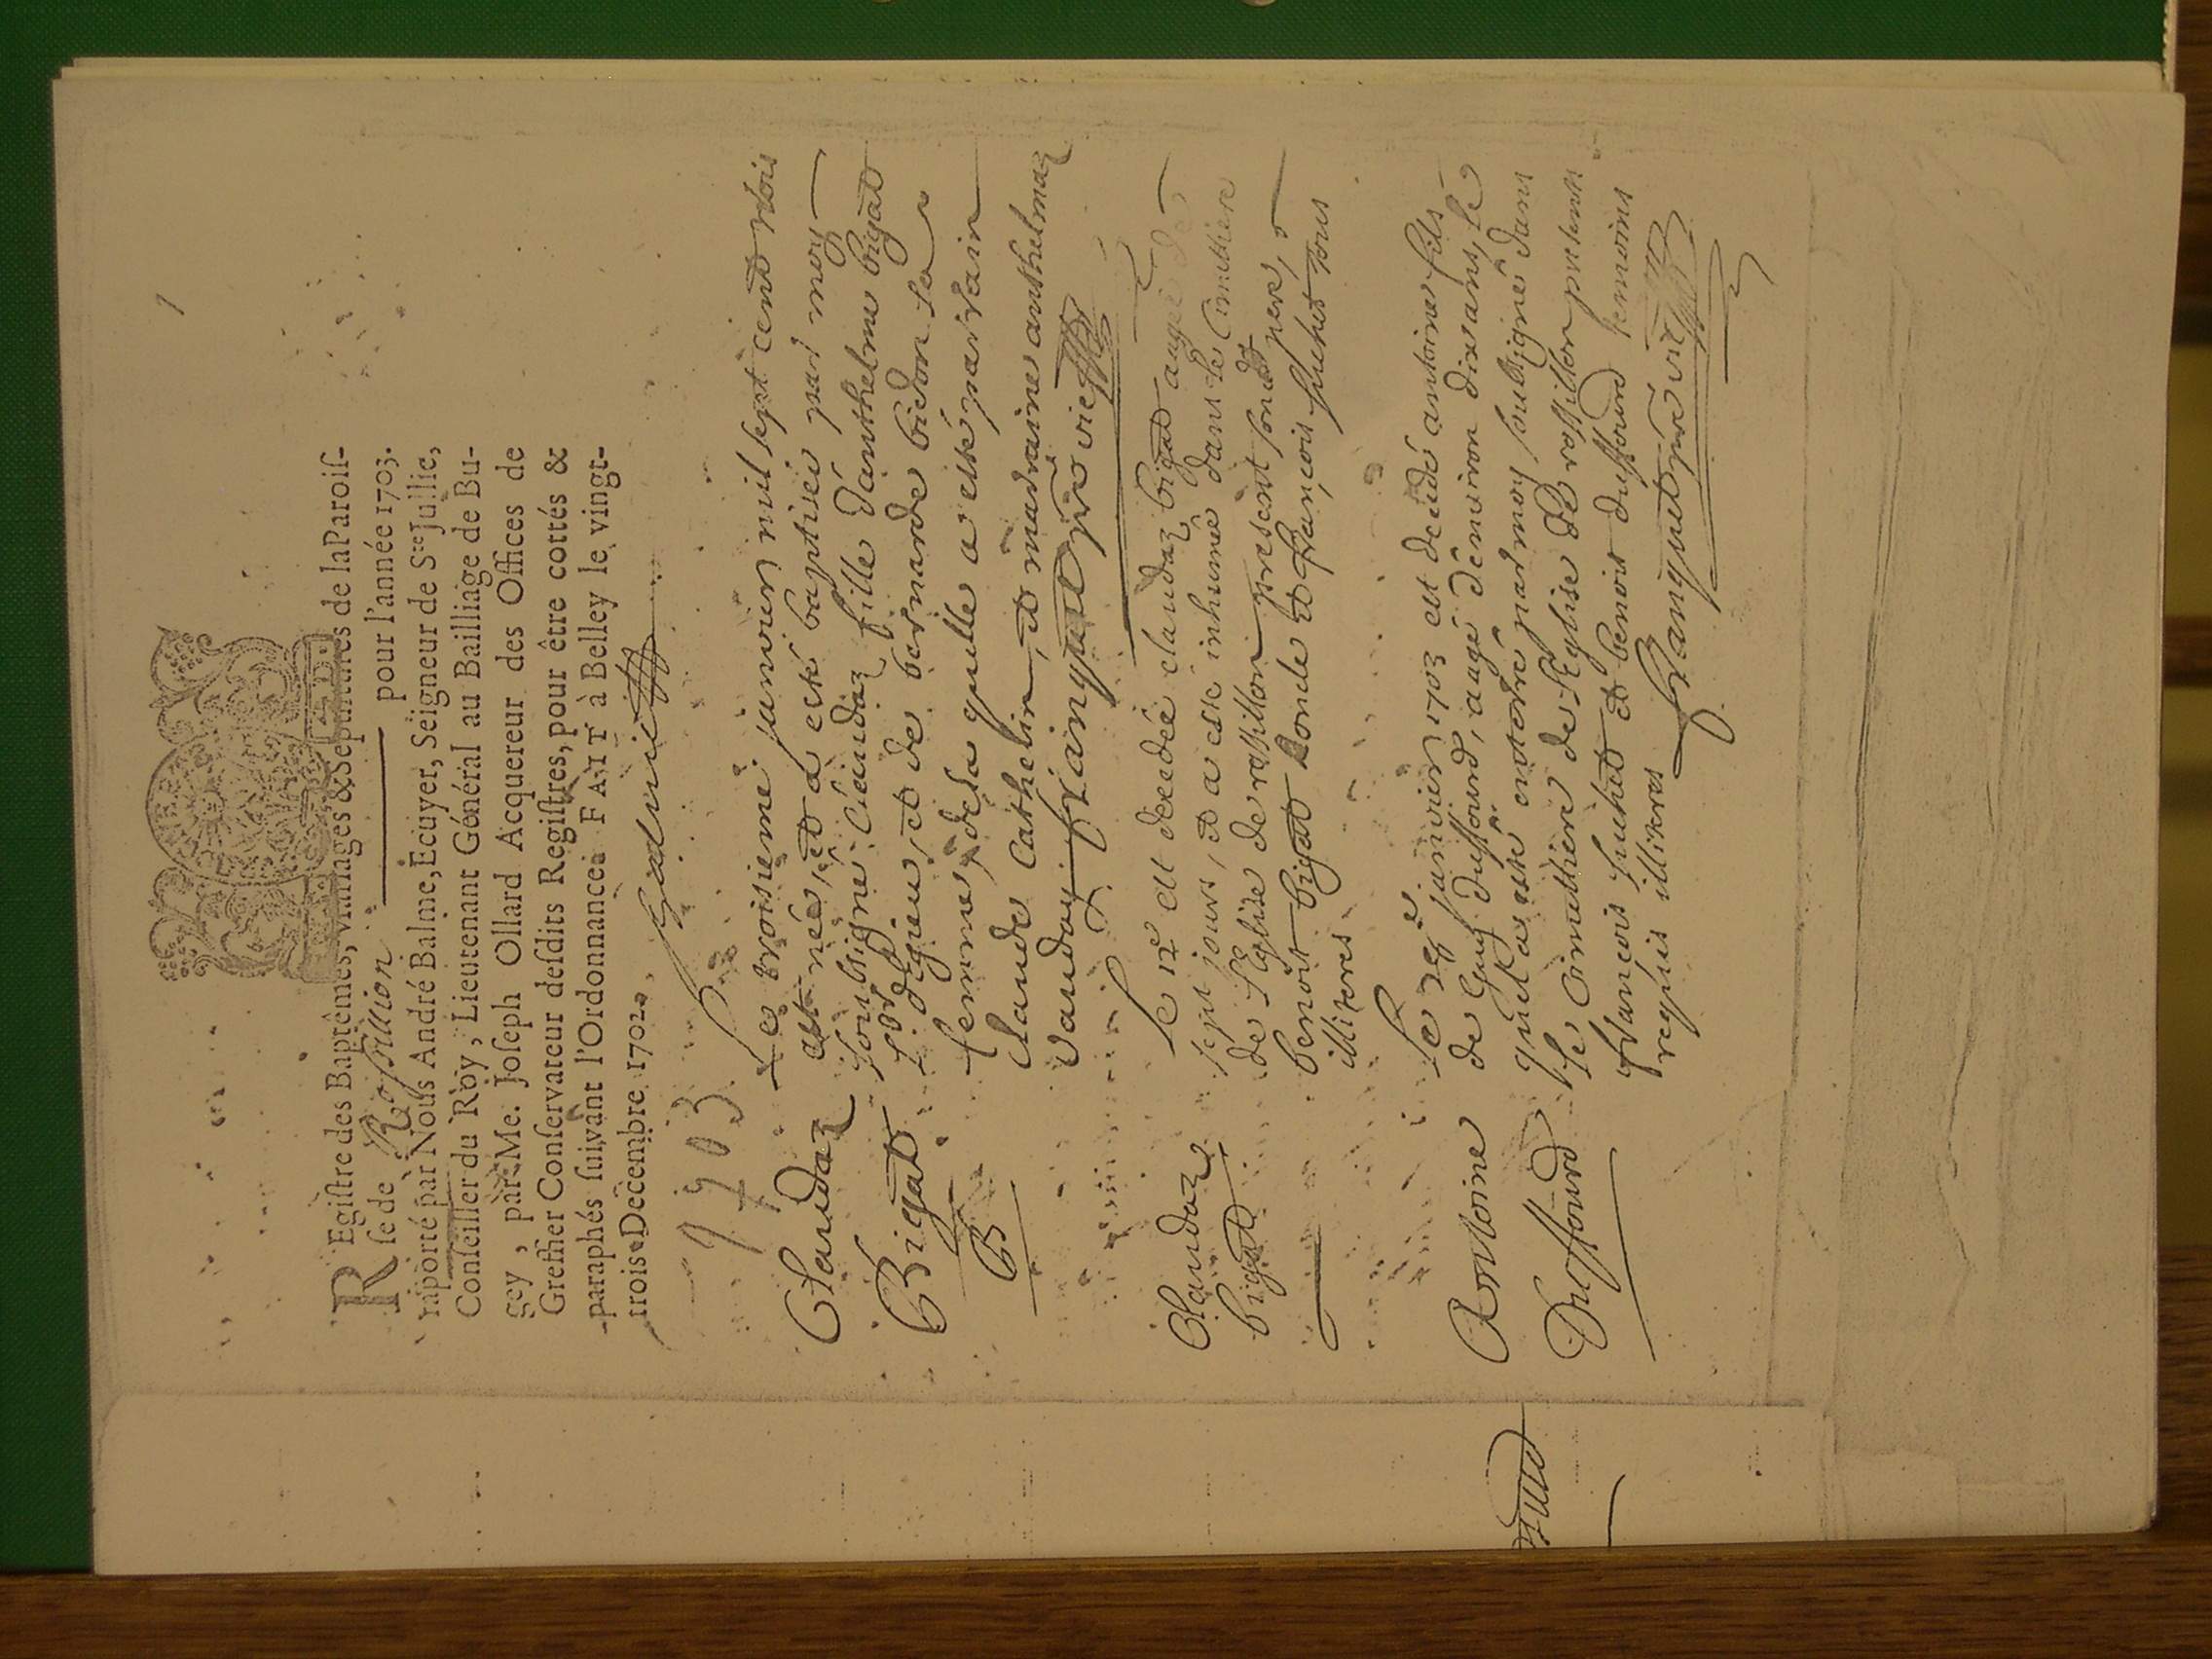 1
REgistre des Baptêmes, Mariages & Sepultures de la Parois-
se de Rossillion pour l'année 1703.
raporté par Nous André Balme, Ecuyer, Seigneur de Ste Jullie,
Conseiller du Roy, Lieutenant Général au Bailliage de Bu-
gey, par Me. Joseph Ollard Acquereur des Offices de
Greffier Conservateur desdits Registres, pour être cottés &
paraphés suivant l'Ordonnance. FAIT à Belley le vingt-
trois Decembre 1702.
1703
Claudaz
Bigat
B
Le troisieme janvier mil sept cent trois
est née, et a esté baptisée par moy
soubsigné Claudaz fille d'anthelme bigat
et de bernarde bidon sa
femme, de la quelle a esté parrain
claude Cathelin, et madraine anthelmaz
vauday franquet pre vic
Claudaz
bigat
le 12e est decedée claudaz bigat augée de
sept jours, et a esté inhumé dans le Cimithiere
de l'Eglise de rossillon present son pere,
benoit bigat Donde et francois huhet tous
illiteres
Antoine
Duffourd
Le janvier 1703 est decedé antoine fils
de Guy duffourd, augé d'environ dix ans, le
quel a esté enterré par moy soubsigné dans
le Cimithiere de l'Eglise de rossillon presents
francois huhet et benoit duffourd temoins
requis illiteres franquet pre vic